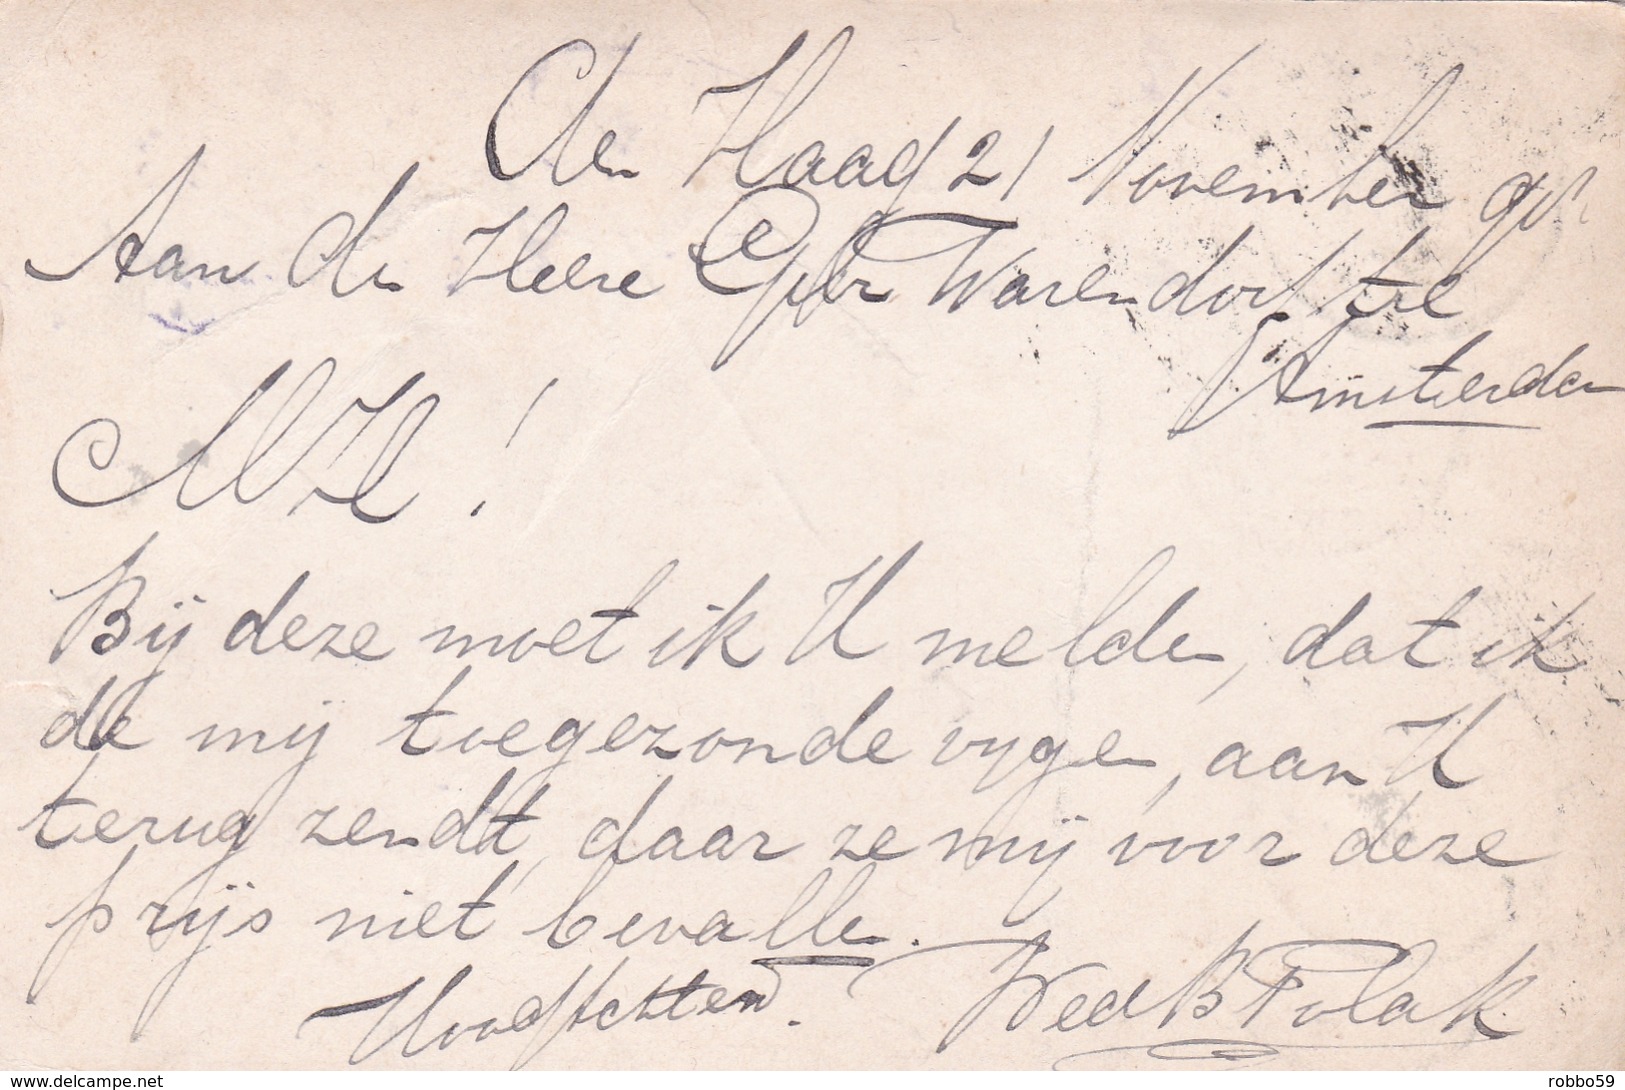 Den Haag 21 November
Aan den Heere Gebr Warendorf
Amsterdam
MH!
Bij deze moet ik U melden, dat ik
de mij toegezonde vijgen, aan U
terug zendt, daar ze mij voor deze
prijs niet bevallen.
Hoogachtend. Wed B Polak
delcampe.net
robbo59